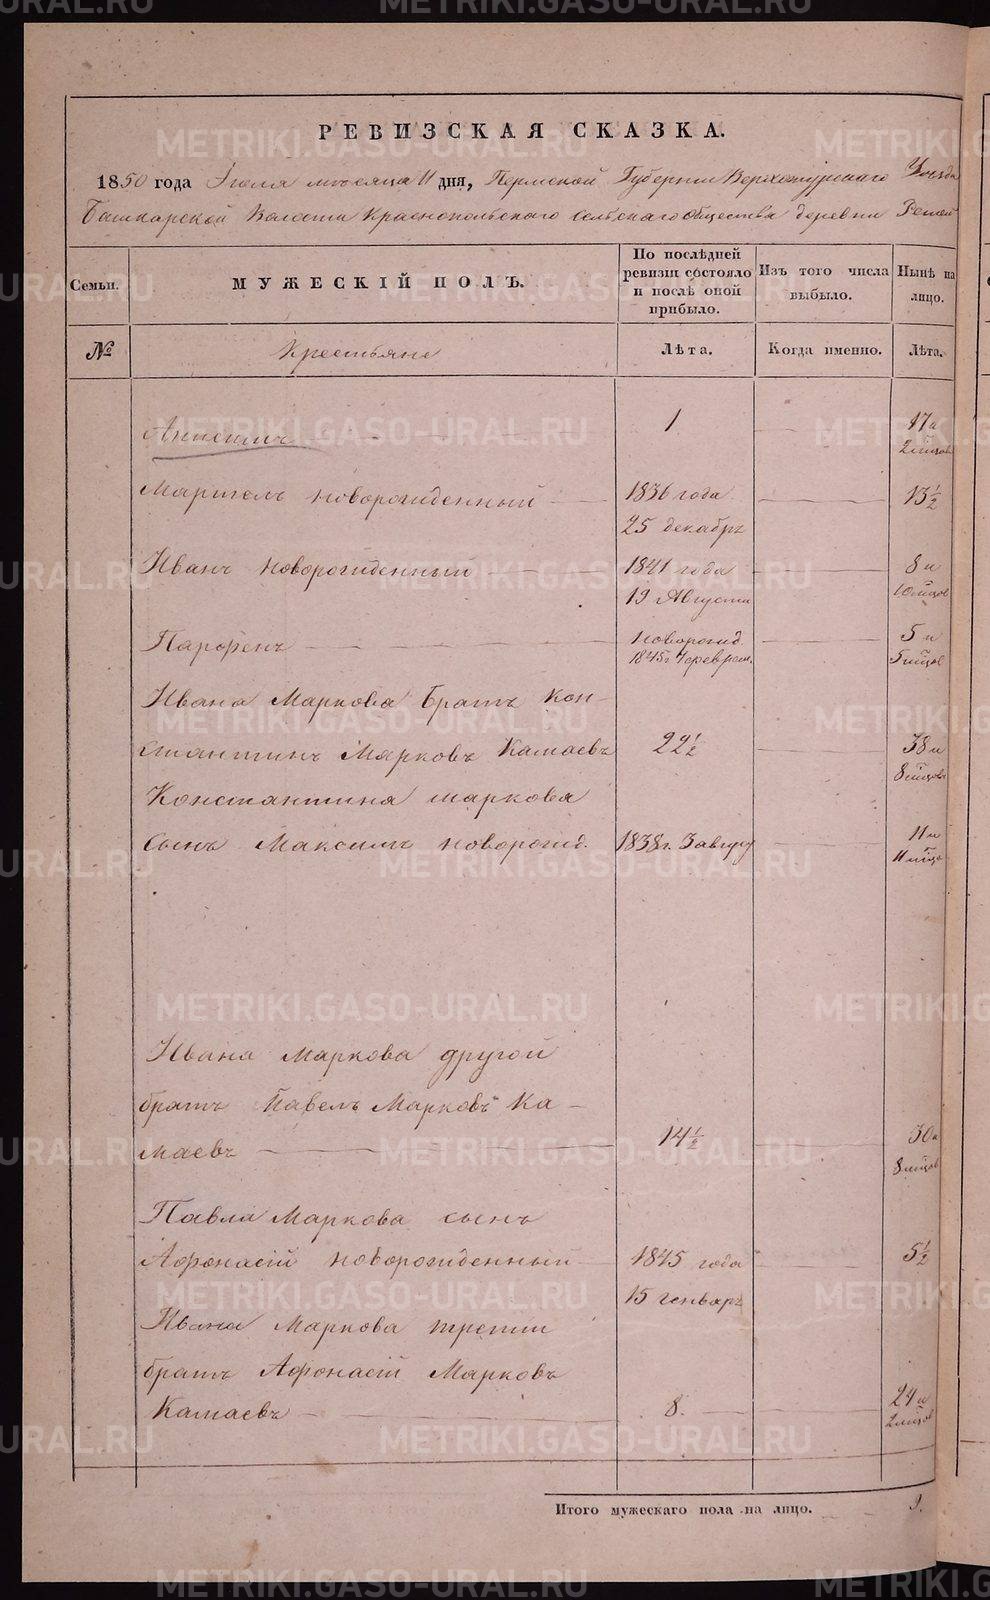 РЕВИЗСКАЯ СКАЗКА.
1850 года Июля месяца 11 дня, Пермской Губернии Верхотурскаго Уезда
Башкарской Волости Краснопольскаго сельскаго Общества деревни
Семьи.
МУЖЕСКІЙ ПОЛЪ.
По послѣдней ревизіи состояло и послѣ оной прибыло.
Изъ того числа выбыло.
Нынѣ на лицо.
№
Крестьяне
Лѣта.
Когда именно.
Лѣта.
1 17 и
2 мѣсцов
Маркелъ новорожденный 1836 года 13½
25 декабр
Иванъ новорожденный 1841 года 8 и
19 Августа 10 мѣсцов
Парфенъ новорожд. 5 и
1845 г 4 феврал. 5 мѣсцов
Ивана Маркова братъ Кон-
стантинъ Марковъ Камаевъ 22½ 38 и
8 мѣсцов
Константина Маркова
сынъ Максимъ новорожд. 1838 г. 3 авгус 11 и
11 мѣсц
Ивана Маркова другой
братъ Павелъ Марковъ Ка-
маевъ 14½ 30 и
8 мѣсцов
Павла Маркова сынъ
Афонасій новорожденный 1845 года 5½
15 генвар
Ивана Маркова третии
братъ Афонасій Марковъ
Камаевъ 8. 24 и
2 мѣсцов
Итого мужескаго пола на лицо. 9.
METRIKI.GASO-URAL.RU